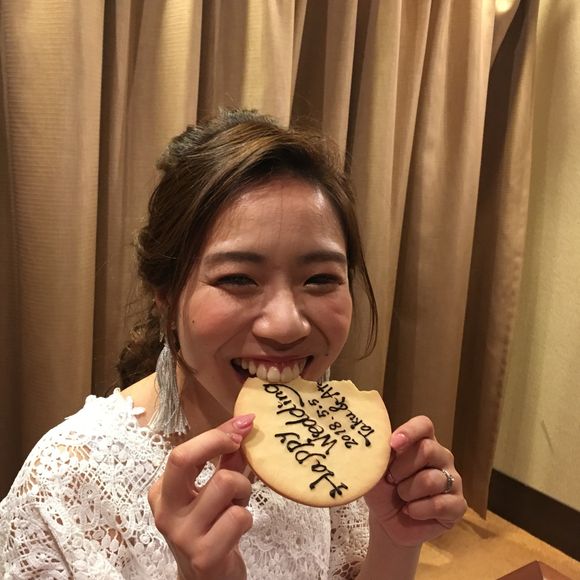 *Happy
Wedding
2018.5.5
Taku &